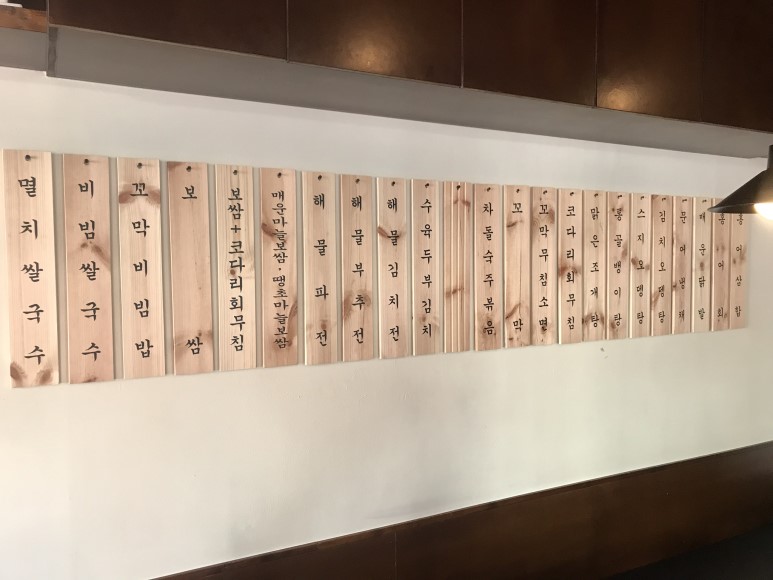 멸치쌀국수
비빔쌀국수
꼬막비빔밥
보쌈
보쌈+코다리회무침
매운마늘보쌈·땡초마늘보쌈
해물파전
해물부추전
해물김치전
수육두부김치
차돌숙주볶음
꼬막
꼬막무침소면
코다리회무침
맑은조개탕
통골뱅이탕
스지오뎅탕
김치오뎅탕
문어냉채
매운닭발
홍어회
홍어삼합